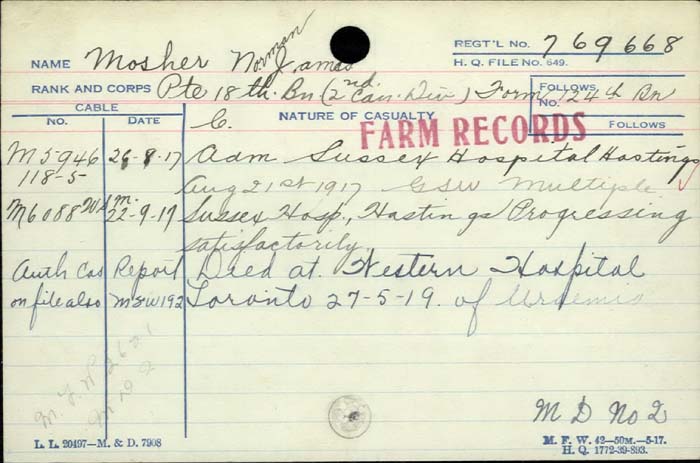 Norman
NAME Mosher James REGT'L No. 769668
H. Q. FILE No. 649.
RANK AND CORPS Pte 18th. Bn (2nd. Can. Div.) Form. 124th Bn
FOLLOWS
No.
CABLE
No. DATE C. NATURE OF CASUALTY FOLLOWS
FARM RECORDS
M5946 26-8-17 Adm Sussex Hospital Hastings
118-5- Aug 21st 1917 GSW Multiple
M6088 22-9-17 Sussex Hosp., Hastings Progressing
satisfactorily
Auth Cas Report Died at Western Hospital
on file also M5W192 Toronto 27-5-19. of Uraemia
M D No 2
L. L. 20497—M. & D. 7908
M. F. W. 42—50M.—5-17.
H. Q. 1772-39-893.